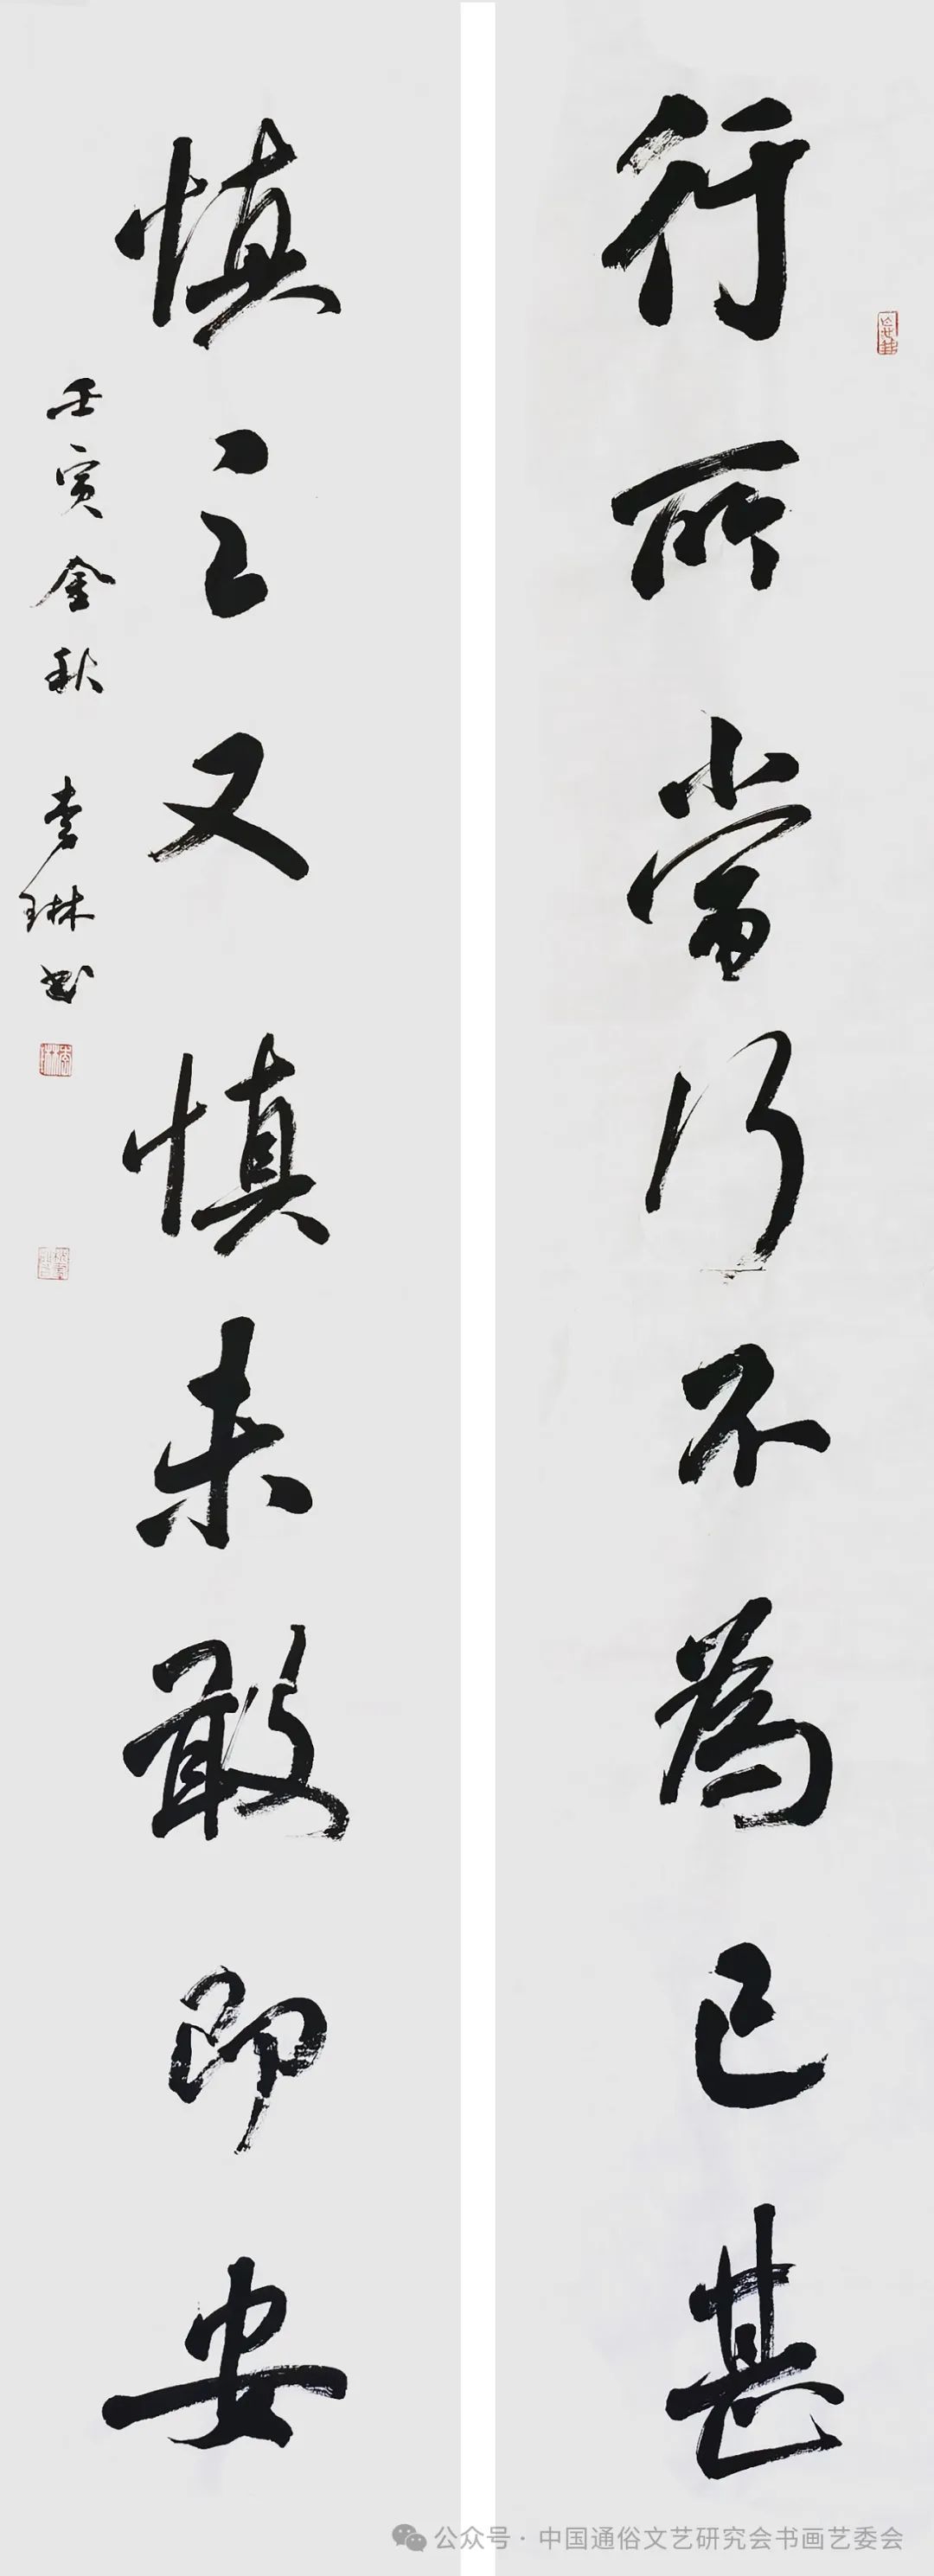 行所當行不為已甚
慎之又慎未敢即安
壬寅金秋 李琳书
公众号·中国通俗文艺研究会书画艺委会